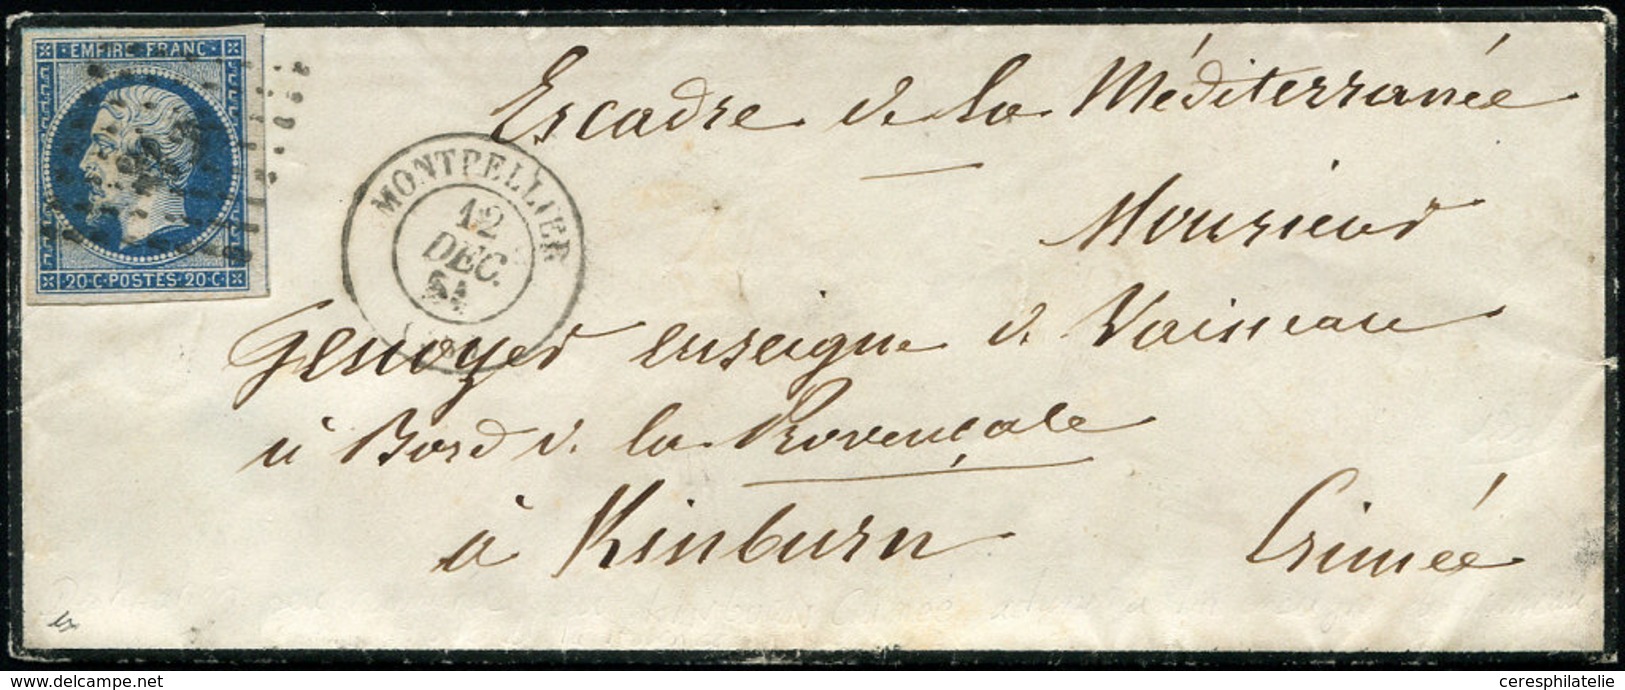 EMPIRE FRANC
20·C·POSTES·20·C·
MONTPELLIER
12
DEC.
54
Escadre de la Méditerranée
Monsieur
Genoyer enseigne de Vaisseau
à Bord de la Provençale
à Kinburn Crimée
www.delcampe.net
ceresphilatelie